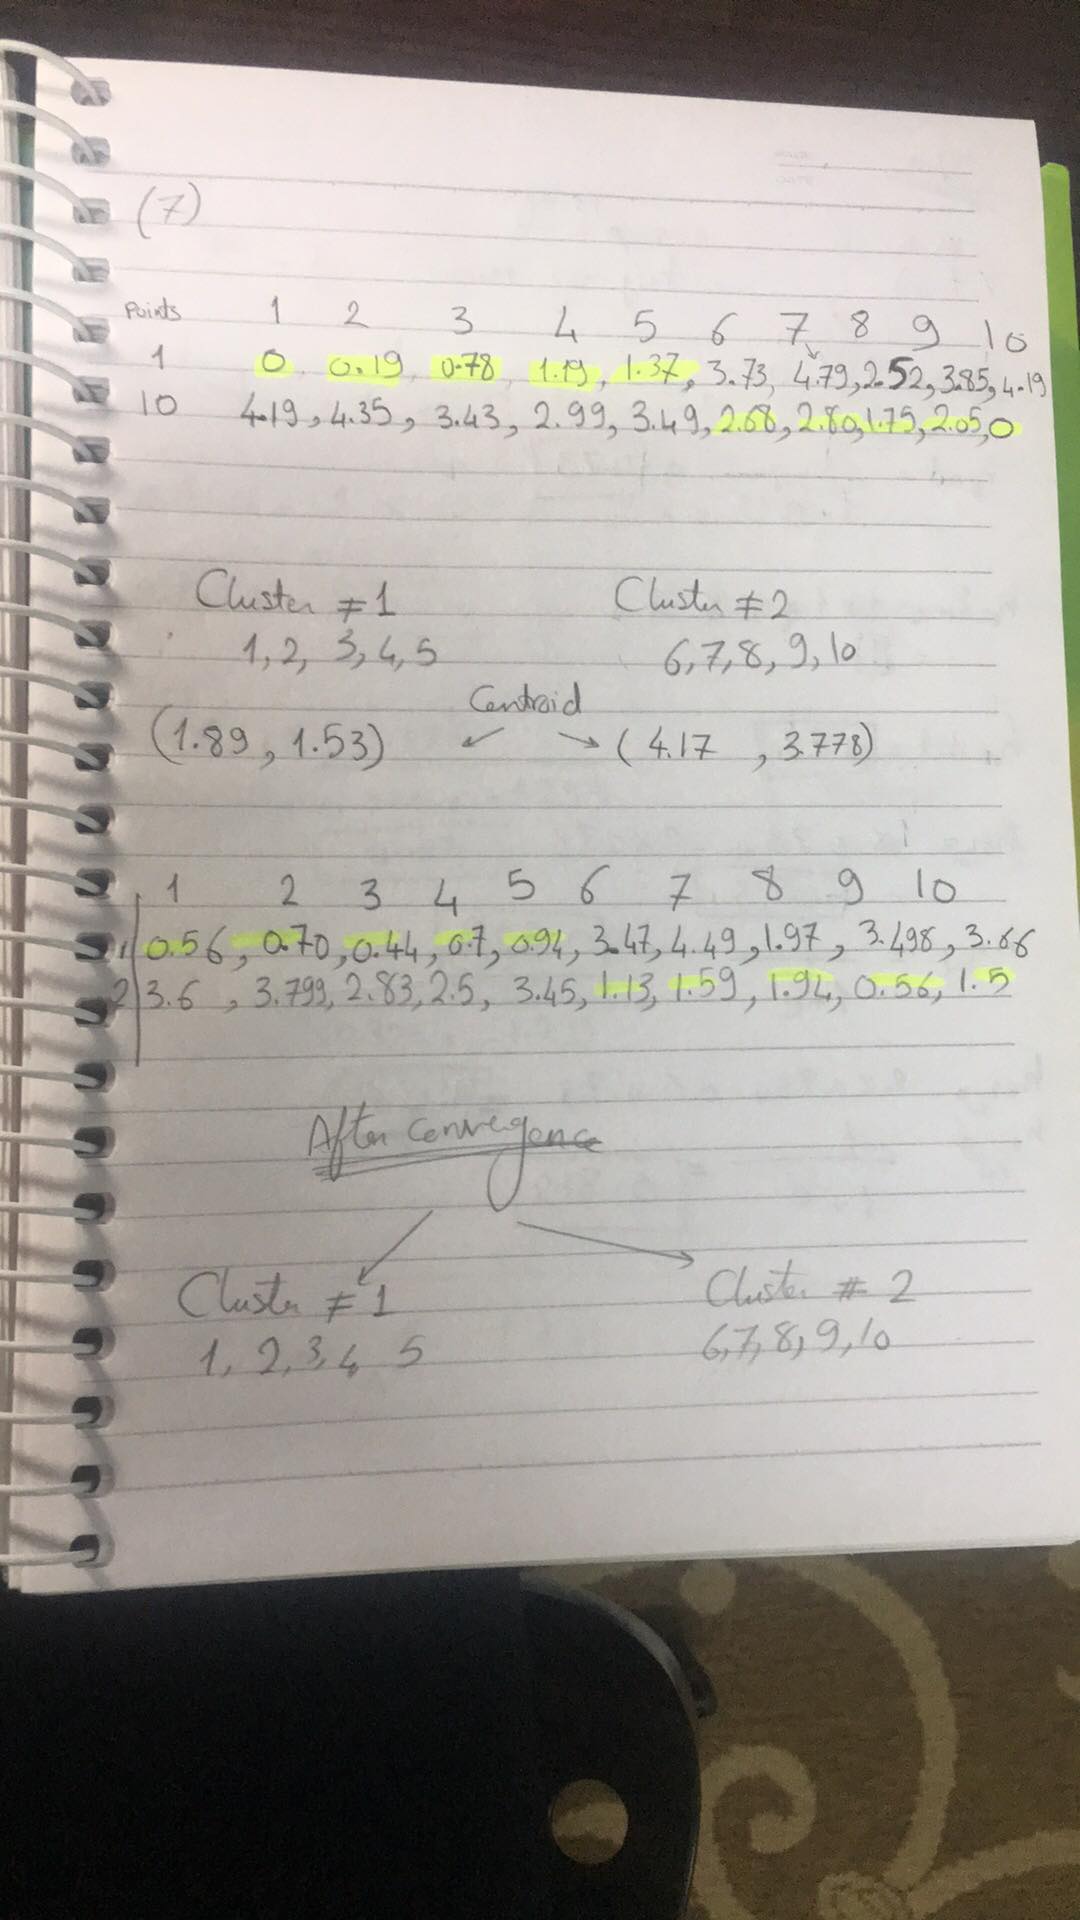 (7)
Points 1 2 3 4 5 6 7 8 9 10
1 0, 0.19, 0.78, 1.19, 1.37, 3.73, 4.79, 2.52, 3.85, 4.19
10 4.19, 4.35, 3.43, 2.99, 3.49, 2.68, 2.80, 1.75, 2.05, 0
Cluster #1 Cluster #2
1, 2, 3, 4, 5 6, 7, 8, 9, 10
Centroid
(1.89, 1.53) ↙ ↘ (4.17, 3.778)
1 2 3 4 5 6 7 8 9 10
1 0.56, 0.70, 0.44, 0.7, 0.94, 3.47, 4.49, 1.97, 3.498, 3.66
2 3.6, 3.799, 2.83, 2.5, 3.45, 1.13, 1.59, 1.94, 0.56, 1.5
After convergence
Cluster #1 Cluster # 2
1, 2, 3, 4 5 6, 7, 8, 9, 10